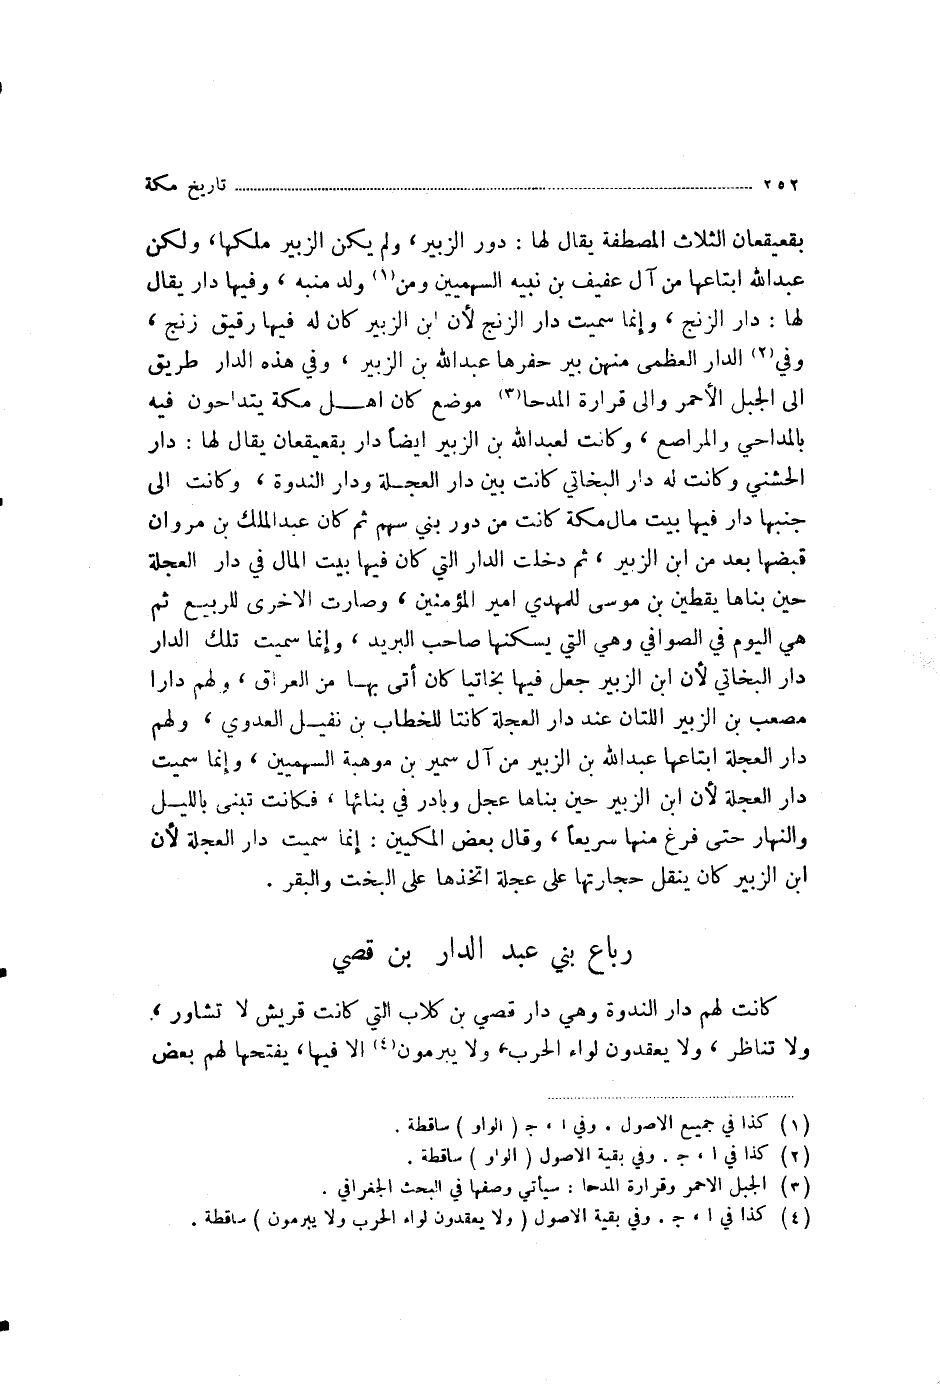 ٢٥٢ ........ تاريخ مكة
بقعيقعان الثلاث المصطفة يقال لها : دور الزبير ، ولم يكن الزبير ملكها، ولكن
عبدالله ابتاعها من آل عفيف بن نبيه السهميين ومن(١) ولد منبه ، وفيها دار يقال
لها : دار الزنج ، وإنما سميت دار الزنج لأن ابن الزبير كان له فيها رقيق زنج ،
وفي(٢) الدار العظمى منهن بير حفرها عبدالله بن الزبير ، وفي هذه الدار طريق
الى الجبل الأحمر والى قرارة المدحا(٣) موضع كان اهـل مكة يتداحون فيه
بالمداحي والمراصع ، وكانت لعبدالله بن الزبير ايضاً دار بقعيقعان يقال لها : دار
الحشني وكانت له دار البخاتي كانت بين دار العجـلة ودار الندوة ، وكانت الى
جنبها دار فيها بيت مال مكة كانت من دور بني سهم ثم كان عبدالملك بن مروان
قبضها بعد من ابن الزبير ، ثم دخلت الدار التي كان فيها بيت المال في دار العجلة
حين بناها يقطين بن موسى للمهدي امير المؤمنين ، وصارت الاخرى للربيـع ثم
هي اليوم في الصوافي وهي التي يسكنها صاحب البريد ، وإنما سميت تلك الدار
دار البخاتي لأن ابن الزبير جعل فيها بخاتيا كان أتى بهـا من العراق ، ولهم دارا
مصعب بن الزبير اللتان عند دار العجلة كانتا للخطاب بن نفيـل العدوي ، ولهم
دار العجلة ابتاعها عبدالله بن الزبير من آل سمير بن موهبة السهميين ، وإنما سميت
دار العجلة لأن ابن الزبير حين بناها عجل وبادر في بنائها ، فـكانت تبنى بالليـل
والنهار حتى فرغ منها سريعاً ، وقال بعض المكيين : إنما سميت دار العجلة لأن
ابن الزبير كان ينقل حجارتها على عجلة اتخذها على البخت والبقر .
رباع بني عبد الدار بن قصي
كانت لهم دار الندوة وهي دار قصي بن كلاب التي كانت قريش لا تشاور ،
ولا تناظر ، ولا يعقدون لواء الحرب، ولا يبرمون(٤) الا فيها، يفتحها لهم بعض
(١) كذا في جميع الاصول . وفي ا ، ج ( الواو ) ساقطة .
(٢) كذا في ا ، ج . وفي بقية الاصول ( الواو ) ساقطة .
(٣) الجبل الاحمر وقرارة المدحا : سيأتي وصفها في البحث الجغرافي .
(٤) كذا في ا ، ج . وفي بقية الاصول ( ولا يعقدون لواء الحرب ولا يبرمون ) ساقطة .